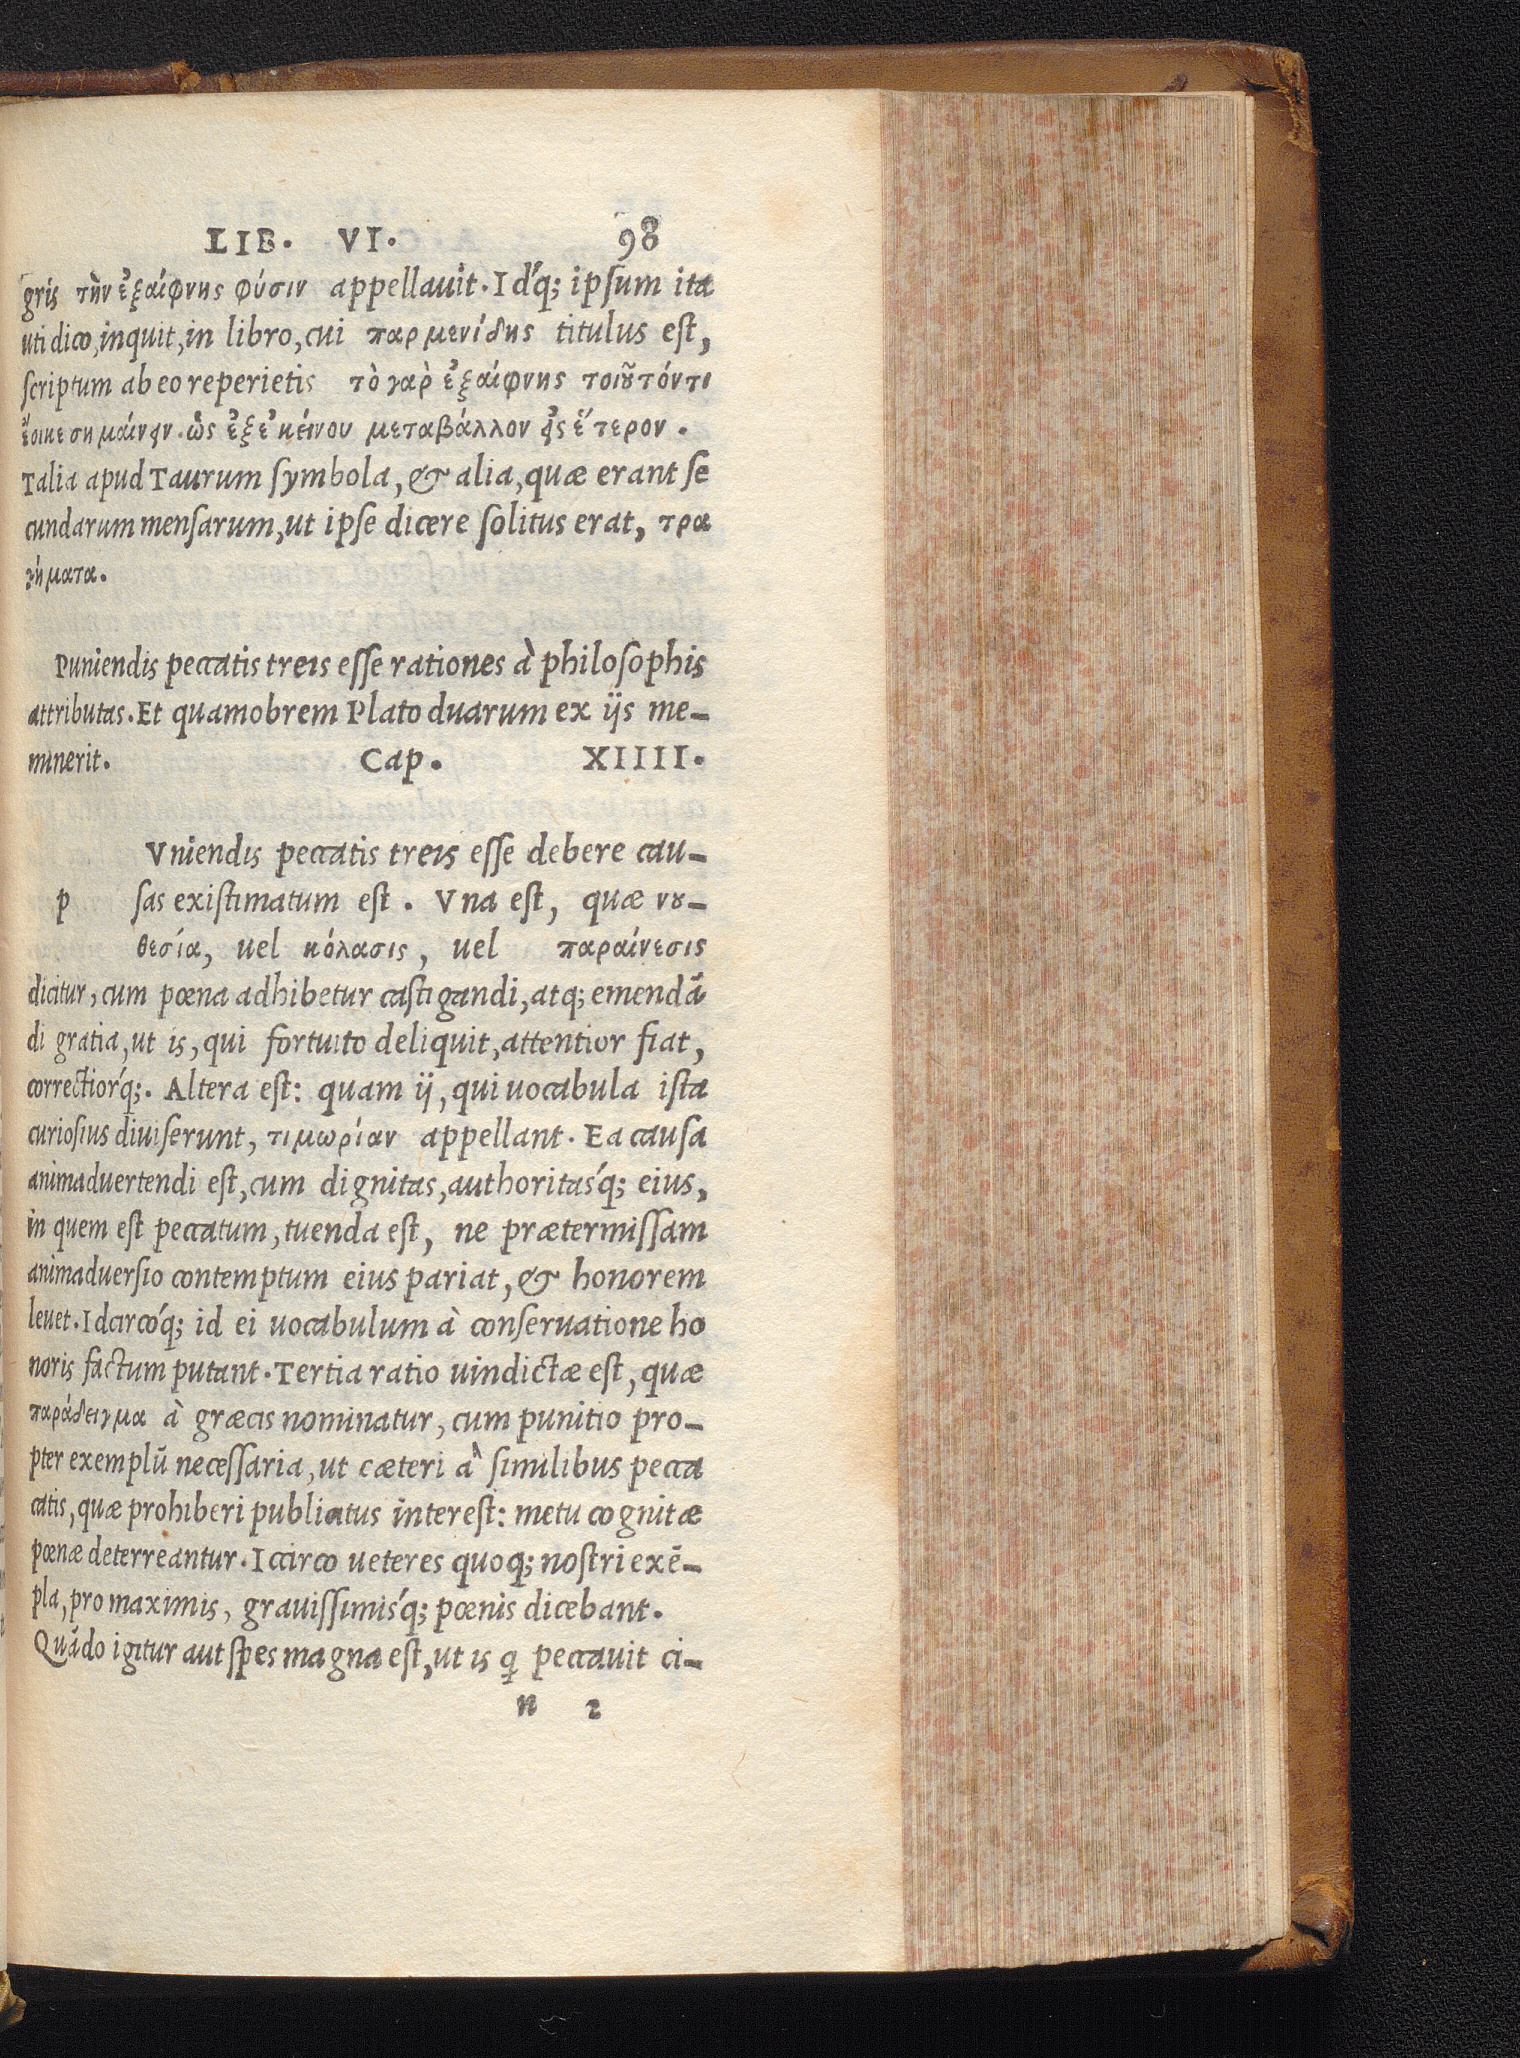 LIB. VI. 98
gris τὴν ἐξαίφνης φύσιν appellauit. Id'q; ipsum ita
uti dico, inquit, in libro, cui παρμενίδης titulus est,
scriptum ab eo reperietis τὸ γαρ̀ ἐξαίφνης τοιȣ̃τόντι
ἔοικε σημαίνειν. ὡς ἐξ ἐκείνου μεταβάλλον εἰς ἕτερον.
Talia apud Taurum symbola, & alia, quæ erant se
cundarum mensarum, ut ipse dicere solitus erat, τρα
γήματα.
Puniendis peccatis treis esse rationes à philosophis
attributas. Et quamobrem Plato duarum ex ijs me-
minerit. Cap. XIIII.
Vniendis peccatis treis esse debere cau-
p sas existimatum est. Vna est, quæ νȣ-
θεσία, uel κόλασις, uel παραίνεσις
dicitur, cum pœna adhibetur castigandi, atq; emendā
di gratia, ut is, qui fortuito deliquit, attentior fiat,
correctior'q;. Altera est: quam ij, qui uocabula ista
curiosius diuiserunt, τιμωρίαν appellant. Ea causa
animaduertendi est, cum dignitas, authoritas'q; eius,
in quem est peccatum, tuenda est, ne prætermissam
animaduersio contemptum eius pariat, & honorem
leuet. Idcirco'q; id ei uocabulum à conseruatione ho
noris factum putant. Tertia ratio uindictæ est, quæ
παράδειγμα à græcis nominatur, cum punitio pro-
pter exemplū necessaria, ut cæteri à similibus pecca
catis, quæ prohiberi publicitus interest: metu cognitæ
pœnæ deterreantur. Iccirco ueteres quoq; nostri exē-
pla, pro maximis, grauissimis'q; pœnis dicebant.
Quādo igitur aut spes magna est, ut is q peccauit ci-
n 2